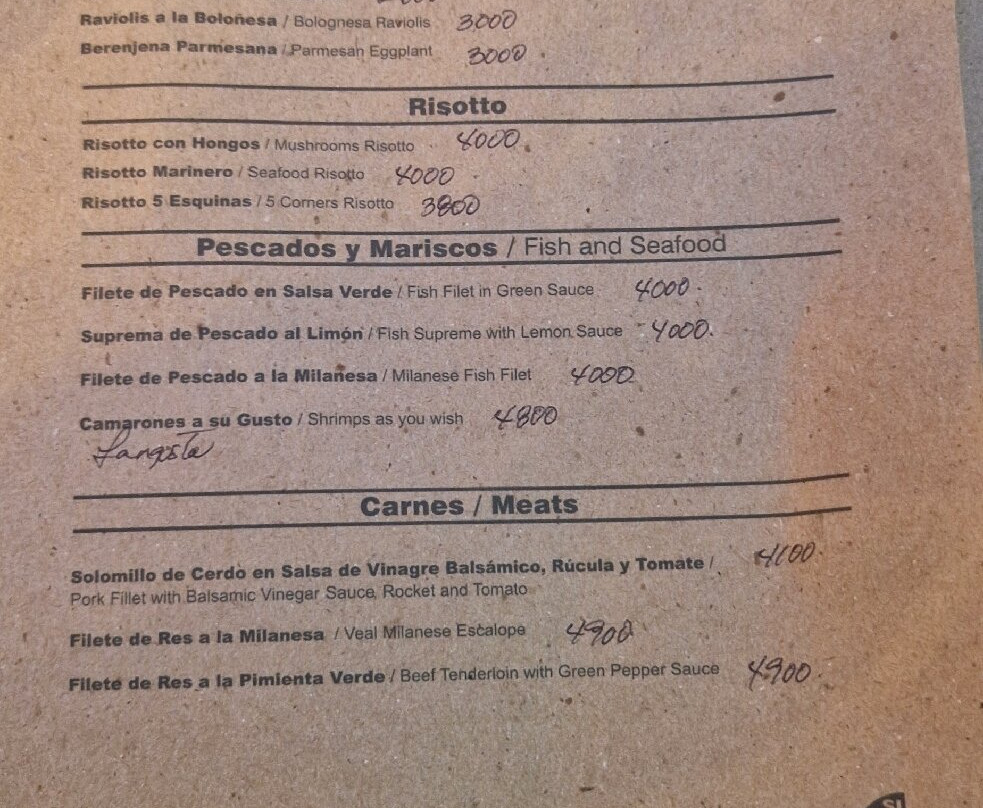 Raviolis a la Boloñesa / Bolognesa Raviolis 3000
Berenjena Parmesana / Parmesan Eggplant 3000
Risotto
Risotto con Hongos / Mushrooms Risotto 4000
Risotto Marinero / Seafood Risotto 4000
Risotto 5 Esquinas / 5 Corners Risotto 3800
Pescados y Mariscos / Fish and Seafood
Filete de Pescado en Salsa Verde / Fish Filet in Green Sauce 4000
Suprema de Pescado al Limón / Fish Supreme with Lemon Sauce 4000
Filete de Pescado a la Milanesa / Milanese Fish Filet 4000
Camarones a su Gusto / Shrimps as you wish 4800
Langosta
Carnes / Meats
Solomillo de Cerdo en Salsa de Vinagre Balsámico, Rúcula y Tomate / 4100
Pork Fillet with Balsamic Vinegar Sauce, Rocket and Tomato
Filete de Res a la Milanesa / Veal Milanese Escalope 4900
Filete de Res a la Pimienta Verde / Beef Tenderloin with Green Pepper Sauce 4900